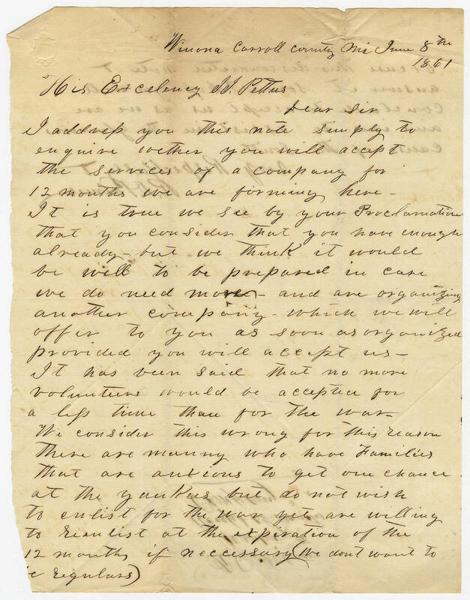 Winona Carroll County Mis June 8th
1861
His Excelency J J. Pettus
Dear Sir
I address you this note simply to
enquire wether you will accept
the services of a company for
12 months we are forming here—
It is true we see by your Proclamation
that you consider that you have enough
already—but we think it would
be well to be prepared in case
we do need more—and are organizing
another company—which we will
offer to you as soon as organized
provided you will accept us—
It has been said that no more
volunteers would be accepted for
a less time than for the war—
We consider this wrong for this reason
there are manny who have Families
that are antious to get one chance
at the yankees but do not wish
to enlist for the war yet are willing
to reenlist at the expiration of the
12 months if neccessary (we dont want to
be regulars)